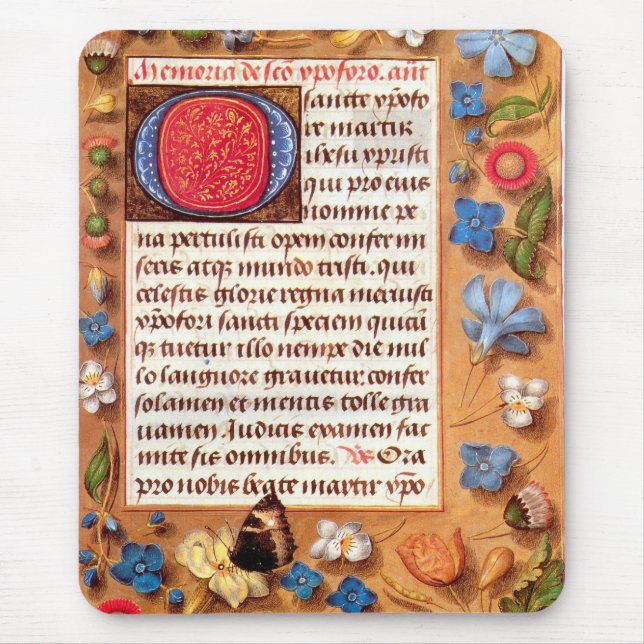 Memoria de sco xpoforo. ant
O sancte xpofo
re martir
ihesu xpristi
qui pro eius
nomine pe
na pertulisti opem confer mi
seris atq mundo tristi. qui
celestis glorie regna meruisti
xpofori sancti speciem quicu
q tuetur illo nempe die nul
lo languore gravetur. confer
solamen et mentis tolle gra
uamen. Iudicis examen fac
mite sit omnibus. Vs Ora
pro nobis beate martir xpo